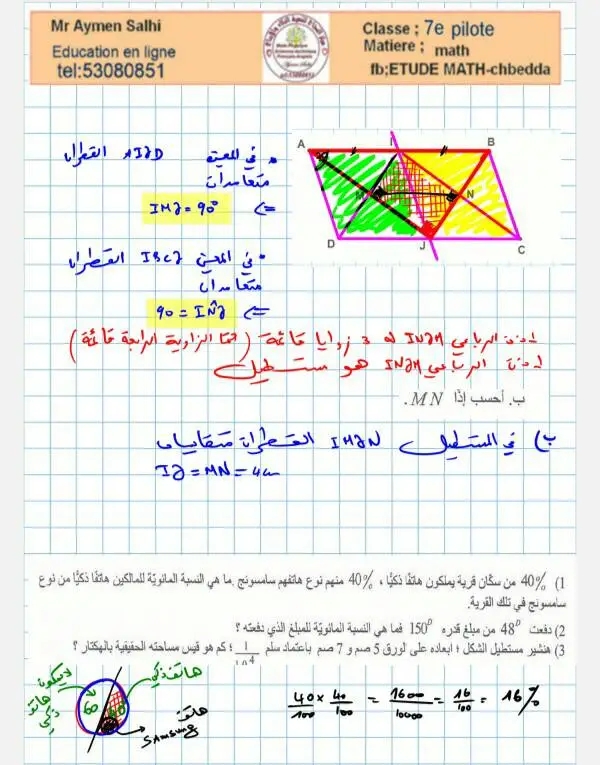 Mr Aymen Salhi
Education en ligne
tel:53080851
Classe ; 7e pilote
Matiere ; math
fb;ETUDE MATH-chbedda
A I B
M N
D J C
في المعين AIJD القطران
متعامدان
=> IMJ = 90°
في المعين IBCJ القطران
متعامدان
=> 90 = IN̂J
إذن الرباعي INJM له 3 زوايا قائمة (حتما الزاوية الرابعة قائمة)
إذن الرباعي INJM هو مستطيل
ب. أحسب إذًا MN.
ب) في المستطيل IMJN القطران متقايسان
IJ = MN = 4cm
1) 40% من سكّان قرية يملكون هاتفًا ذكيًّا ، 40% منهم نوع هاتفهم سامسونج .ما هي النسبة المائويّة للمالكين هاتفًا ذكيًّا من نوع
سامسونج في تلك القرية.
2) دفعت 48ᴰ من مبلغ قدره 150ᴰ فما هي النسبة المائويّة للمبلغ الذي دفعته ؟
3) هنشير مستطيل الشكل ؛ ابعاده على الورق 5 صم و 7 صم باعتماد سلم 1/10⁴ ؛ كم هو قيس مساحته الحقيقية بالهكتار ؟
لا يملكون
هاتف
ذكي
60
40
هاتف ذكي
هاتف
SAMSUNG
40/100 × 40/100 = 1600/10000 = 16/100 = 16%